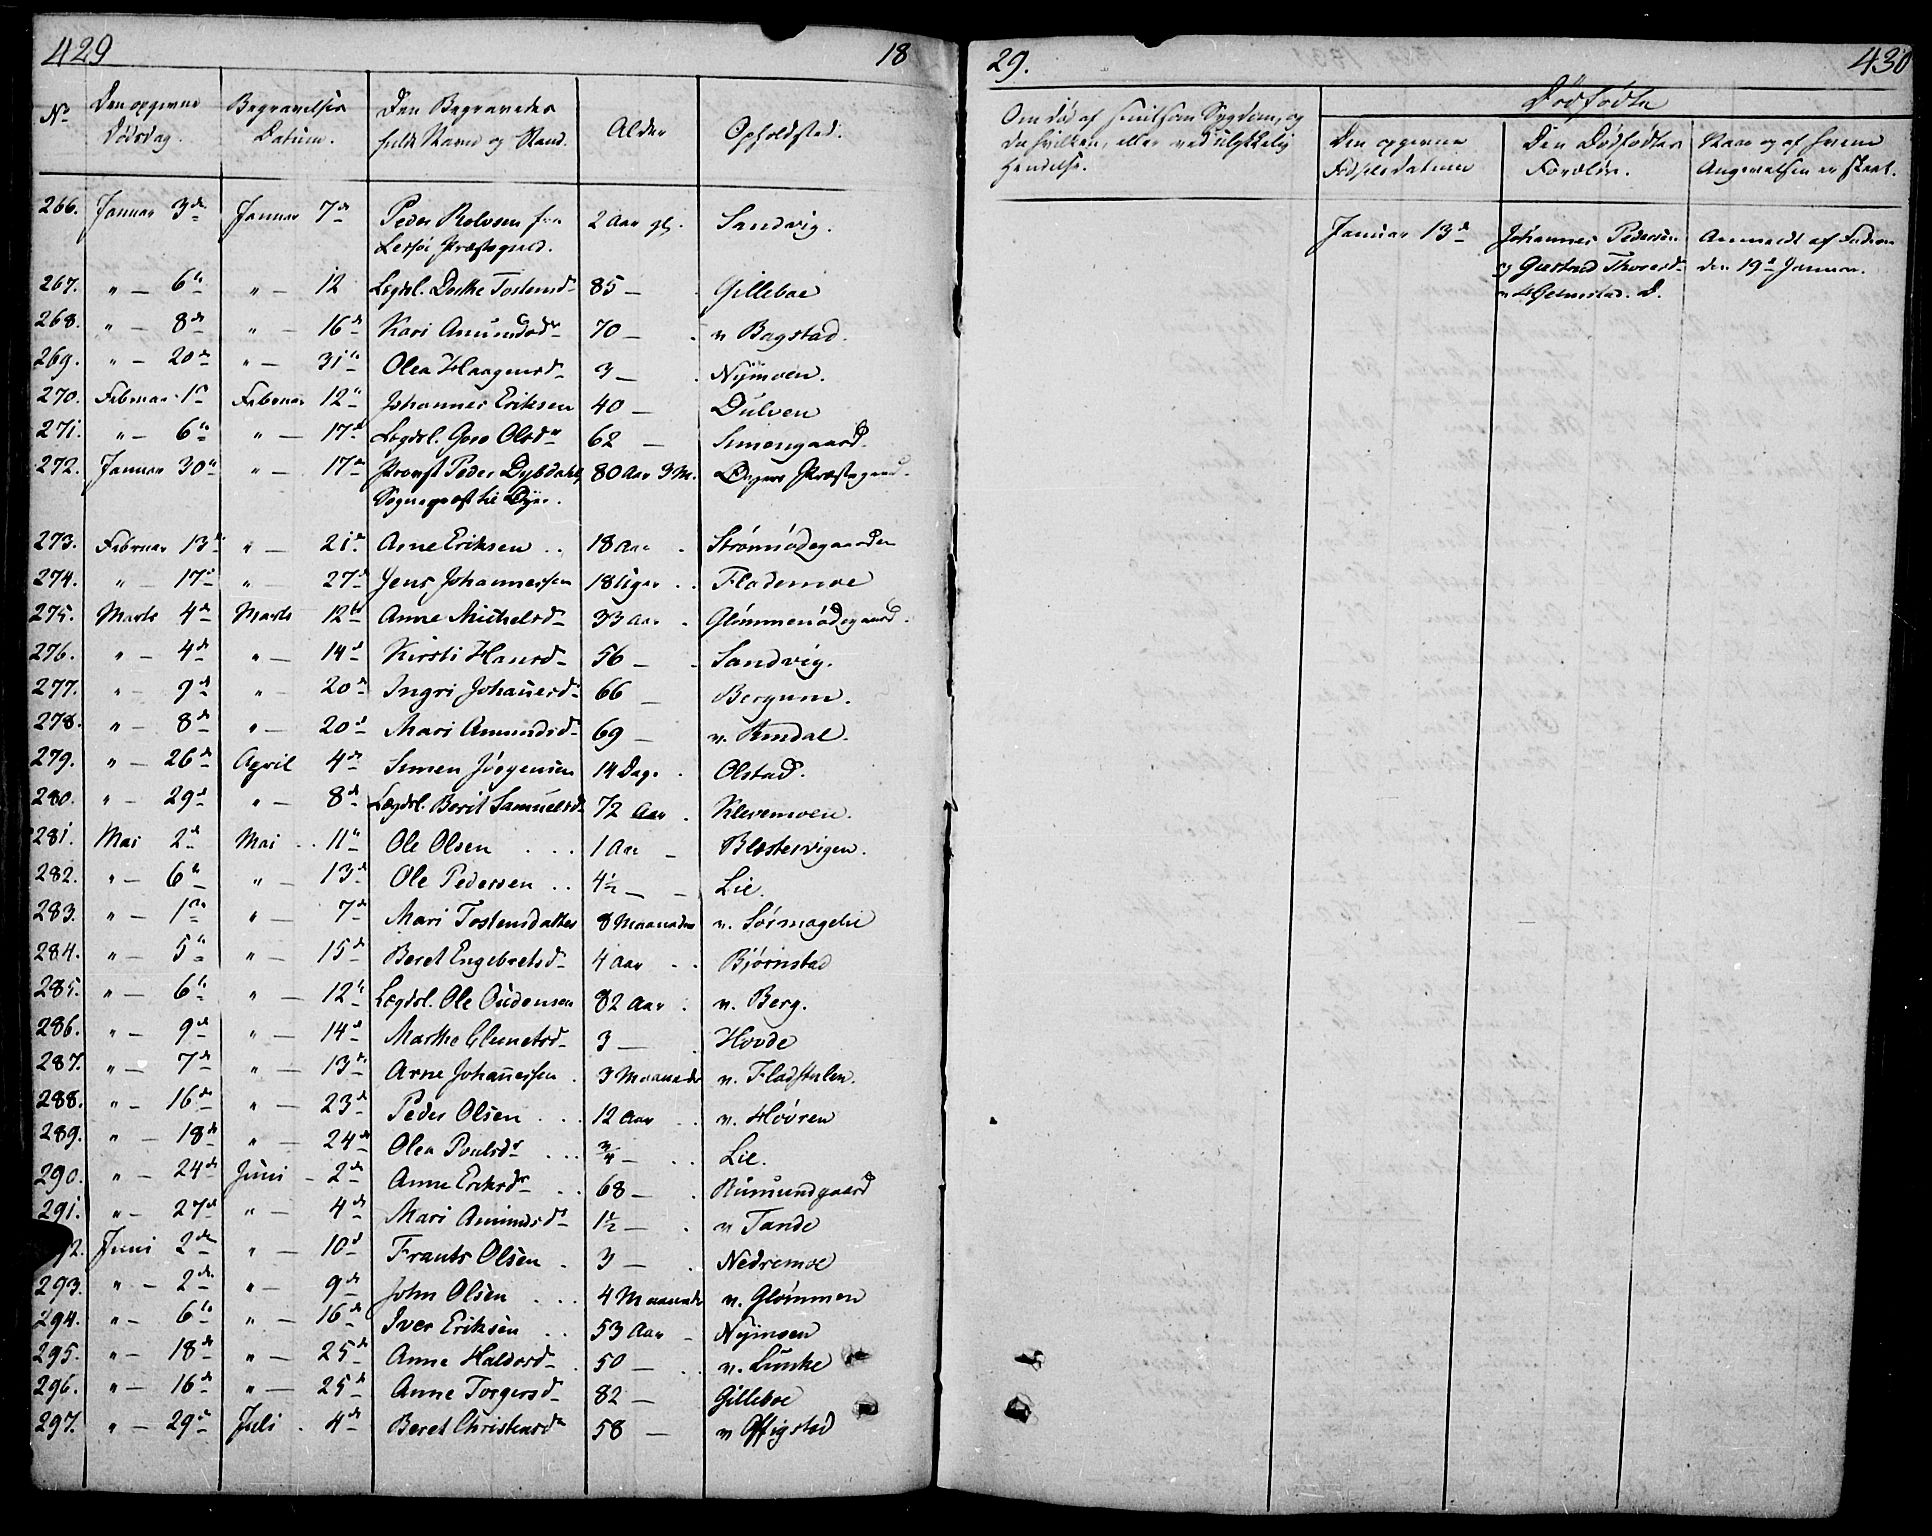 429 18
29. 430
No Den opgivne Dødsdag. Begravelses Datum. Den Begravedes fulde Navn og Stand. Alder Opholdsted.
Om død af smitsom Sygdom, og da hvilken, eller ved ulykkelig Hendelse.
Dødfødte
Den opgivne Fødselsdatum Den Dødfødtes Forældre. Naar og af hvem Angivelsen er skeet.
266. Januar 3de Januar 7de Peder Rolvsen fra 2 Aar gl. Sandvig.
Lessøe Præstegield.
Januar 13de Johannes Pedersen Anmeldt af Faderen
og Thoresd. den 19de Januar.
267. " — 6te " — 12 Lægdsl. Tostensd. 85 — Gilleboe
268. " — 8de " — 16de Kari Amundsdr 70 — n Bagstad.
269. " — 20de " — 31te Olea Haagensd. 3 — Nÿmoen.
270. Februar 1te Februar 12te Johannes Eriksen 40 — Dulven
271. " — 6te " — 17de Lægdsl. Goro Olsdr 62 — Simengaard.
272. Januar 30te " — 17de Provst Peder Dybdahl, 80 Aar 9 M. Øyers Præstegaard.
Sognepræst til Øyer.
273. Februar 13de " — 21de Arne Eriksen 18 Aar Strømsødegaarden
274. " — 17de " — 27de Jens Johannessen 18 Uger Flademoe
275. Marts 4de Marts 12te Anne Michelsd. 33 Aar Glømmenødegaard.
276. " — 4de " — 14de Kirsti Hansd. 56 — Sandvig.
277. " — 9de " — 20de Ingri Johañesd. 66 — Bergum.
278. " — 8de " — 20de Mari Amundsd. 69 — n. Rindal.
279. " — 26de April 4de Simen Jörgensen 14 Dage Olstad.
280. " — 29de " — 8de Lægdsl. Berit Samuelsd. 72 Aar Klevemoen.
281. Mai 2de Mai 11te Ole Olsen 1 Aar Blæstervigen.
282. " — 6te " — 13de Ole Pedersen 4½ — Lie
283. " — 1te " — 7de Mari Tostensdatter 8 Maaneder n. Sörmagelie
284. " — 5te " — 15de Beret Engebretsd. 4 Aar Bjørnstad
285. " — 6te " — 12te Lægdsl. Ole Oudensen 82 Aar n. Berg.
286. " — 9de " — 14de Marthe Clemetsd. 3 — Hovde
287. " — 7de " — 13de Arne Johañessen 3 Maaneder n. Fladstulen.
288. " — 16de " — 23de Peder Olsen 12 Aar n. Høvren
289. " — 18de " — 24de Olea Poulsdr ¾ — Lie.
290. " — 24de Juni — 2de Anne Eriksdr 68 — Rumundgaard
291. " — 27de " — 4de Mari Amundsd. 1½ — n Tande
92. Juni 2de " — 10de Frants Olsen 3 — Nedremoe
293. " — 2de " — 9de John Olsen 4 Maaneder n. Glømmen
294. " — 6te " — 16de Iver Eriksen 53 Aar Nÿmoen
295. " — 18de " — 25de Anne Haldorsd. 50 — n. Lunke
296. " — 16de " — 25de Anne Torgersd. 82 — Gilleboe
297. " — 29de Juli 4de Beret Christensd. 58 — n Offigstad